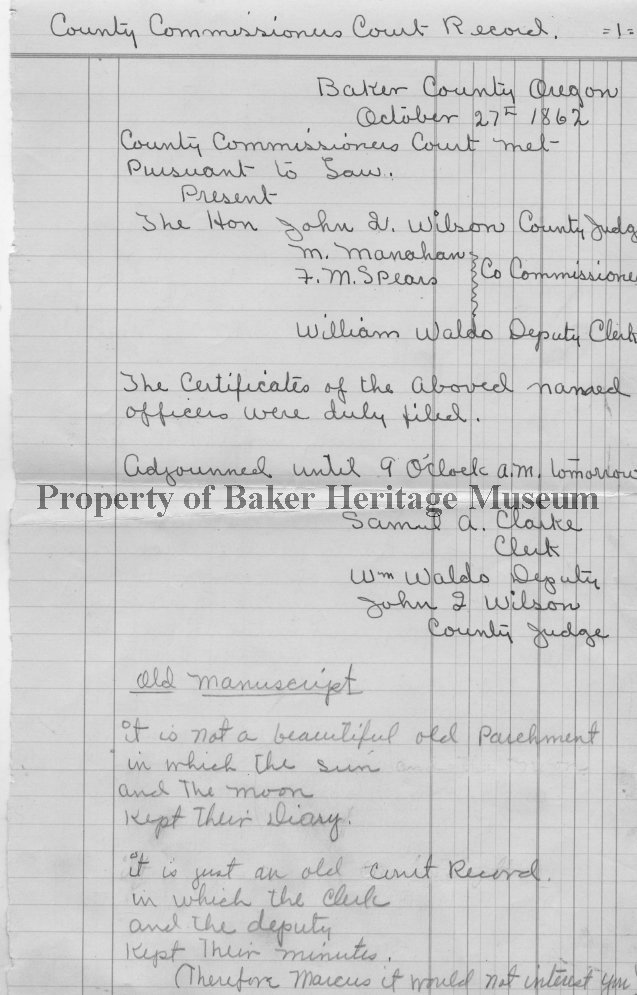 County Commissioners Court Record. =1=
Baker County Oregon
October 27th 1862
County Commissioners Court met
Pursuant to Law.
Present
The Hon John Q. Wilson County Judge
M. Manahan
F. M. Spears } Co Commissione
William Waldo Deputy Clerk
The Certificates of the aboved named
officers were duly filed.
Adjounned until 9 O'clock a.m. tomorrow
Property of Baker Heritage Museum
Samul A. Clarke
Clerk
Wm Waldo Deputy
John Q Wilson
County Judge
Old Manuscript
it is not a beautiful old Parchment
in which the sun
and The moon
Kept Their Diary.
it is just an old Court Record.
in which the Clerk
and the deputy
Kept Their minutes.
(Therefore Marcus it would not interest you)